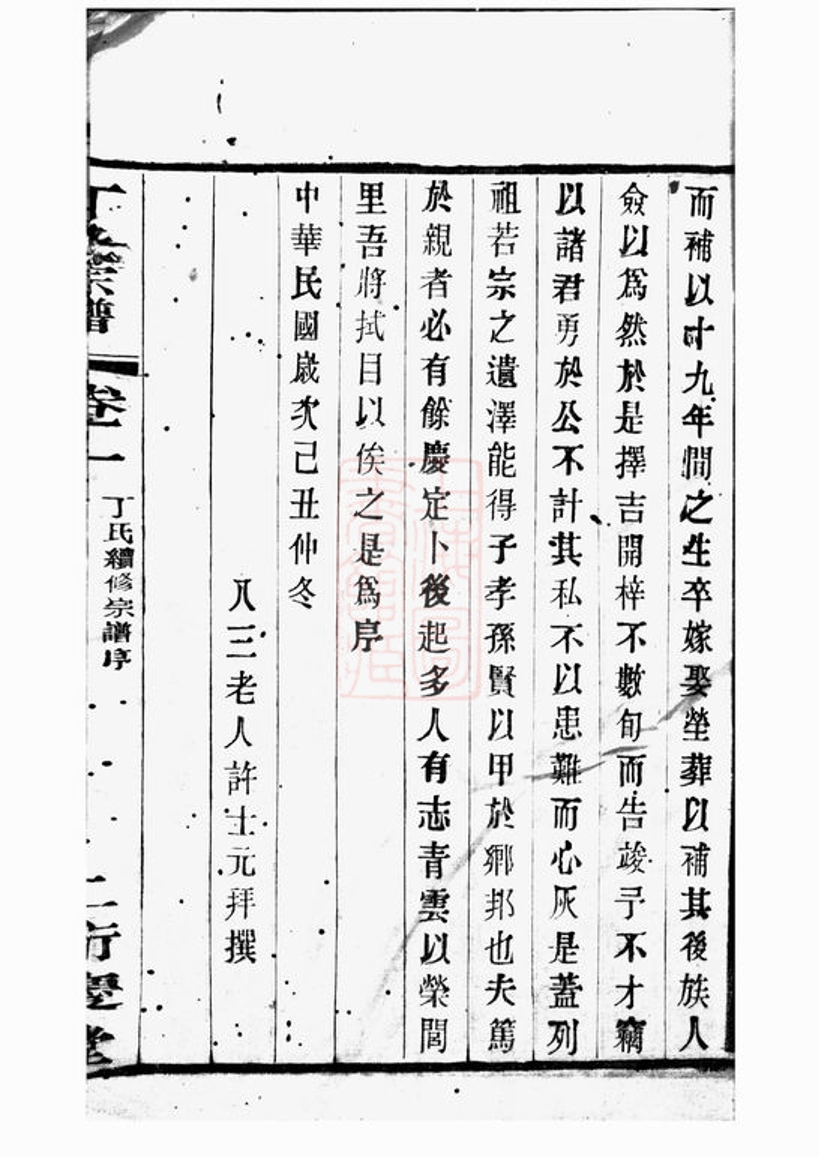 而補以廿九年間之生卒嫁娶塋葬以補其後族人
僉以為然於是擇吉開梓不數旬而告竣予不才竊
以諸君勇於公不計其私不以患難而心灰是蓋列
祖若宗之遺澤能得子孝孫賢以甲於鄉邦也夫篤
於親者必有餘慶定卜後起多人有志青雲以榮閭
里吾將拭目以俟之是為序
中華民國歲次己丑仲冬
八三老人許士元拜撰
丁氏宗譜
卷一
丁氏續修宗譜序
二
衍慶堂